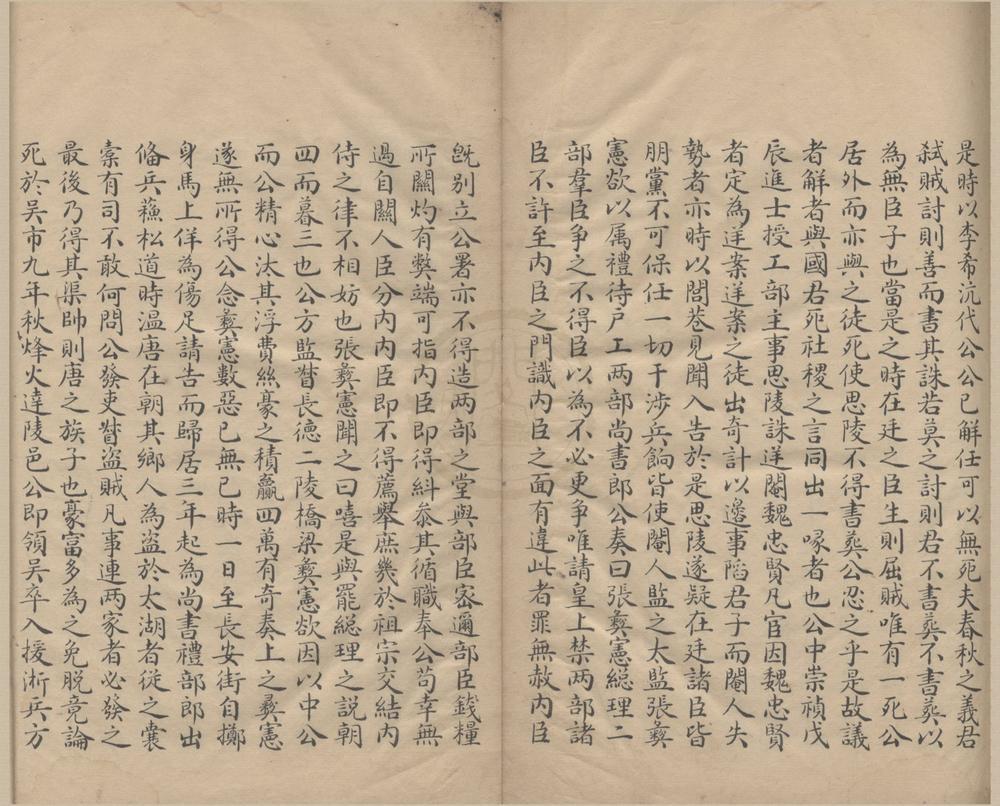 是時以李希沆代公公已解任可以無死夫春秋之義君
弒賊討則善而書其誅若莫之討則君不書葬不書葬以
為無臣子也當是之時在廷之臣生則屈賊唯有一死公
居外而亦與之徒死使思陵不得書葬公忍之乎是故議
者解者與國君死社稷之言同出一喙者也公中崇禎戊
辰進士授工部主事思陵誅逆閹魏忠賢凡官因魏忠賢
者定為逆案逆案之徒出奇計以邊事陷君子而閹人失
勢者亦時以閭巷見聞入告於是思陵遂疑在廷諸臣皆
朋黨不可保任一切干涉兵餉皆使閹人監之太監張彝
憲欲以属禮待户工两部尚書郎公奏曰張彝憲総理二
部羣臣争之不得臣以為不必更争唯請皇上禁两部諸
臣不許至内臣之門識内臣之面有違此者罪無赦内臣
既别立公署亦不得造两部之堂與部臣密邇部臣錢糧
所關灼有弊端可指内臣即得糾叅其循職奉公苟幸無
過自關人臣分内内臣即不得薦舉庶幾於祖宗交結内
侍之律不相妨也張彝憲聞之曰嘻是與罷総理之説朝
四而暮三也公方監督長德二陵橋梁彝憲欲因以中公
而公精心汰其浮費絲豪之積贏四萬有奇奏上之彝憲
遂無所得公念彝憲數惡已無已時一日至長安街自擲
身馬上佯為傷足請告而歸居三年起為尚書禮部郎出
俻兵蘓松道時温唐在朝其鄉人為盗於太湖者從之囊
橐有司不敢何問公發吏督盗賊凡事連两家者必發之
最後乃得其渠帥則唐之族子也豪富多為之免脱竟論
死於吴市九年秋烽火達陵邑公即領吴卒入援浙兵方